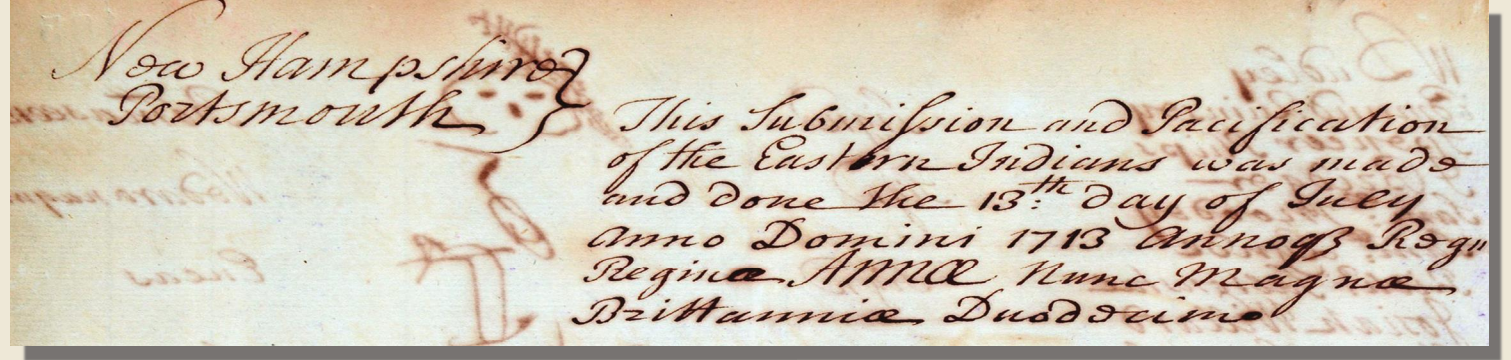 New Hampshire
Portsmouth
This Submiſsion and Pacification
of the Eastern Indians was made
and done the 13th day of July
Anno Domini 1713 Annoqȝ Regn
Reginæ Annæ Nunc Magnæ
Brittanniæ Duodecimo